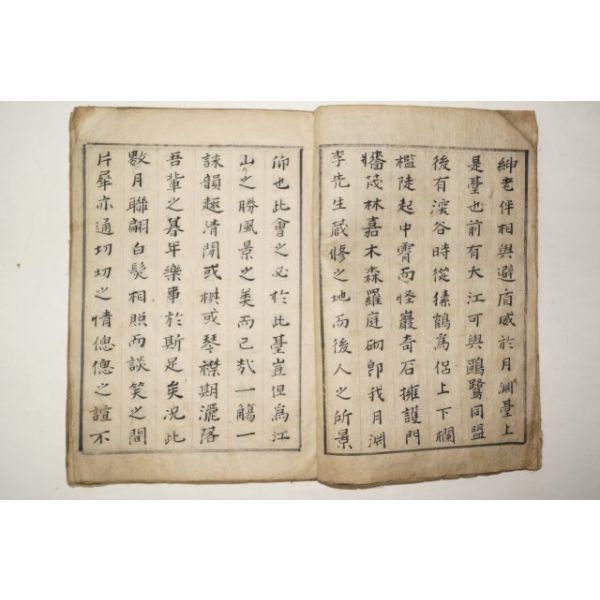 紳老伴相與避店咸於月淵臺上
是臺也前有大江可與鷗鷺同盟
後有濱谷時從猿鶴爲侶上下欄
檻陡起中霄而怪巖奇石擁護門
墻茂林嘉木森羅庭砌卽我月淵
李先生藏修之地而後人之所景
仰也此會之必於此臺豈但爲江
山之勝風景之美而已哉一觴一
詠韻趣淸閒或棋或琴襟期灑落
吾輩之暮年樂事於斯足矣況此
數月聯翩白髮相照而談笑之間
片犀亦通切切之情偲偲之誼不